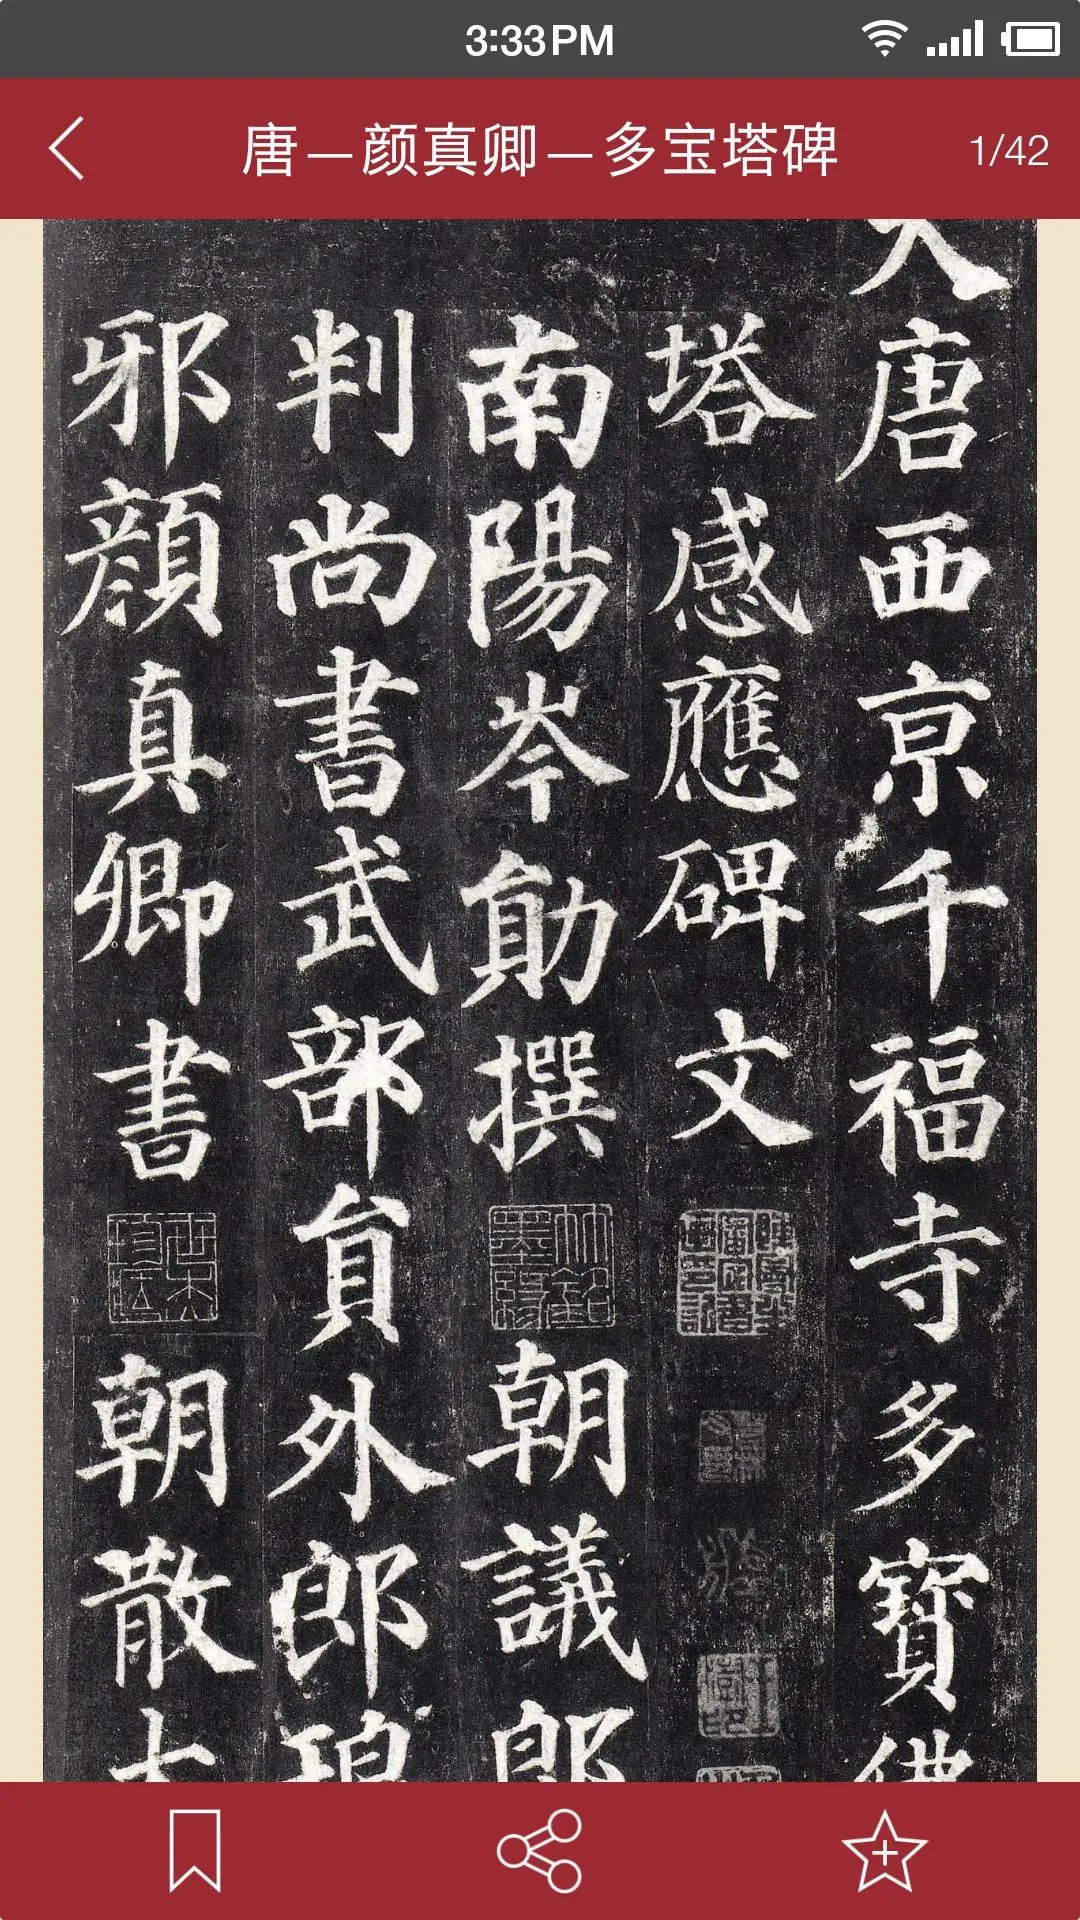 3:33PM
唐—颜真卿—多宝塔碑
1/42
大唐西京千福寺多寶佛
塔感應碑文
南陽岑勛撰
朝議郎
判尚書武部員外郎琅
邪顏真卿書
朝散大